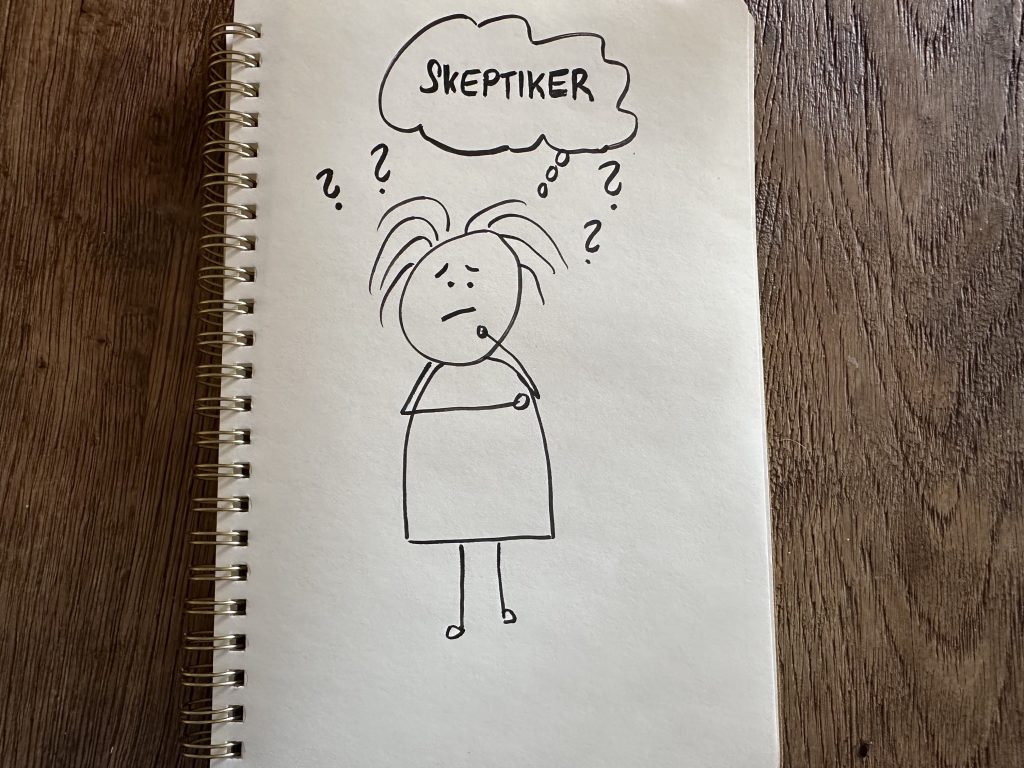 SKEPTIKER
? ? ?
?